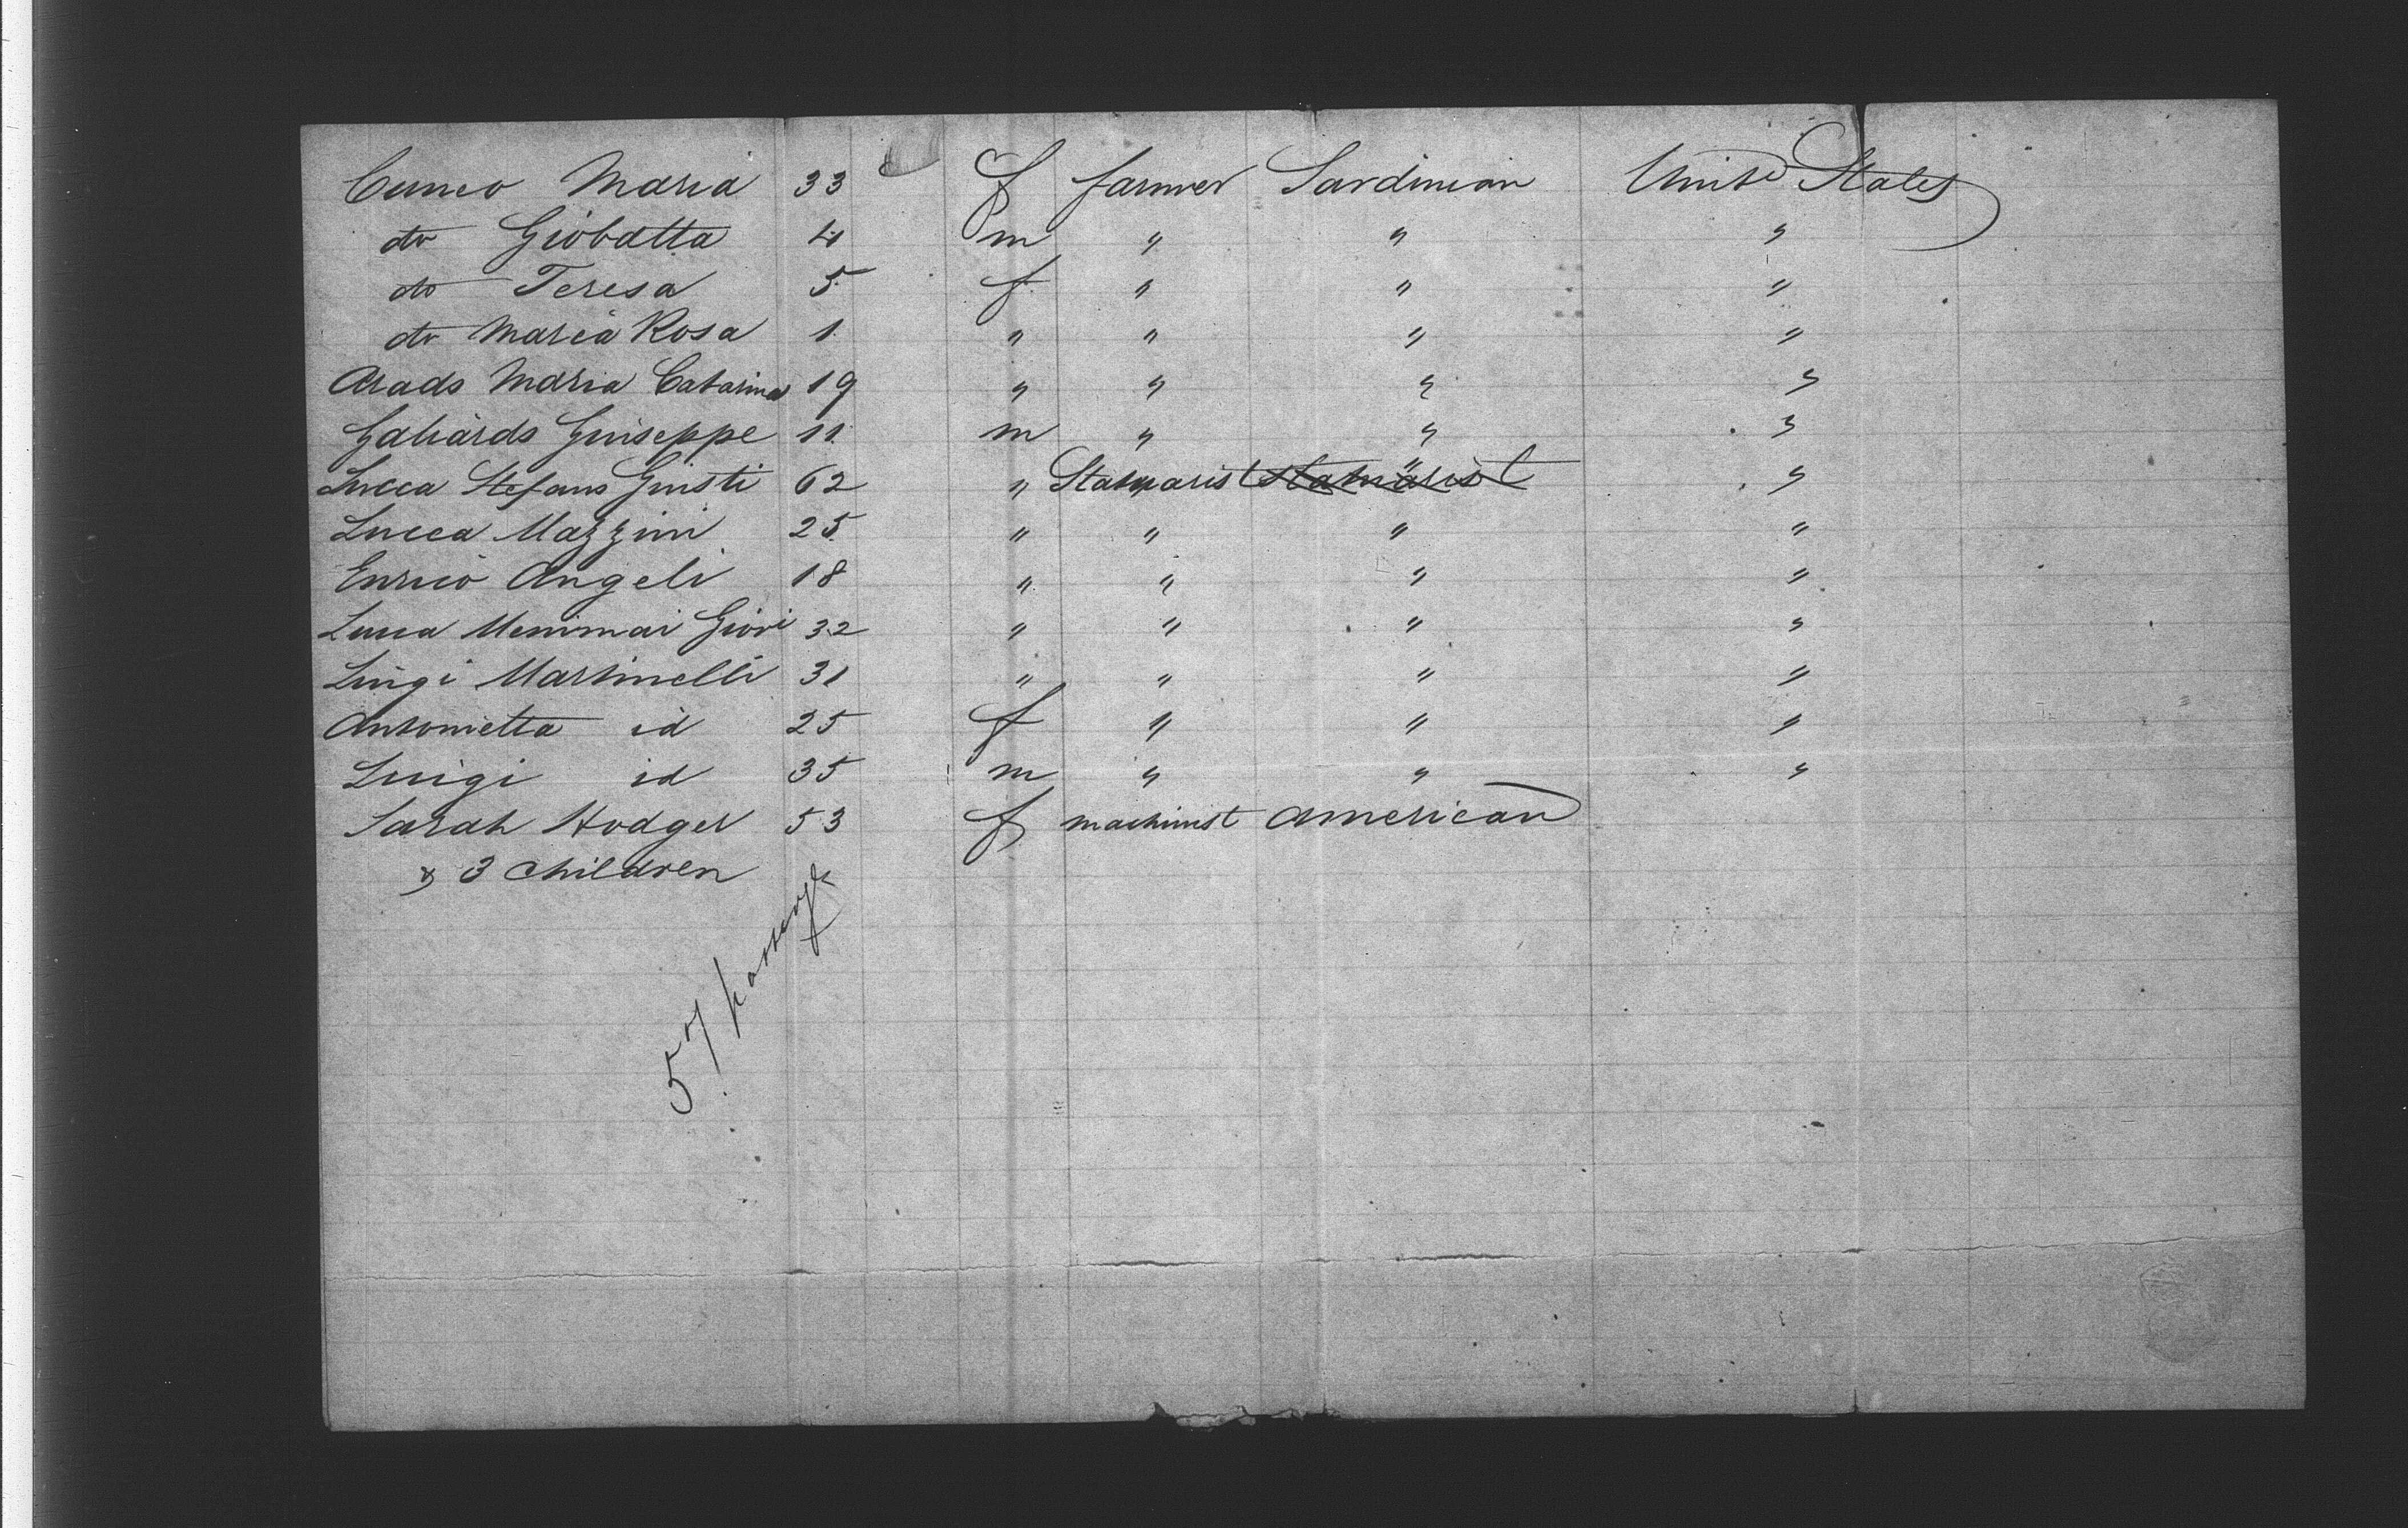 Cuneo Maria 33 f farmer Sardinian Unitd States
do Giobatta 4 m " " "
do Teresa 5 f " " "
do Maria Rosa 1 " " " "
Arado Maria Catarina 19 " " " "
Galiardo Giuseppe 11 m " " "
Lucca Stefano Giusti 62 " Statuarist statuarist " "
Lucca Mazzini 25 " " " "
Enrico Angeli 18 " " " "
Lucca Menimai Giovi 32 " " " "
Luigi Martinelli 31 " " " "
Antonietta id 25 f " " "
Luigi id 35 m " " "
Sarah Hodger 53 f machinist american
& 3 children
57